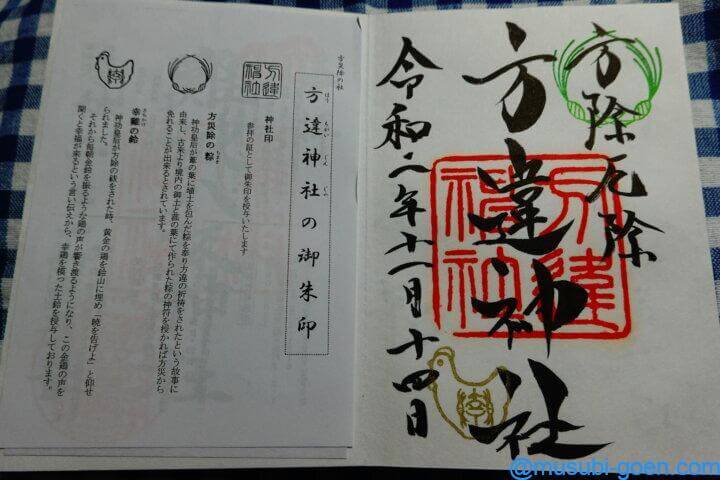 方除厄除
方違神社
方違神社
令和二年十一月十四日
幸
方災除の社
方違神社の御朱印
ほう ちがい じん じゃ
方違神社
神社印
参拝の証として御朱印を授与いたします
方災除の粽
ちまき
神功皇后が菰の葉に埴土を包んだ粽を奉り方違の祈祷をされたという故事に
由来し、古来より境内の御土と菰の葉にて作られた粽の神符を授かれば方災から
免れることが出来るとされています。
幸
幸鶏の鈴
さちかけ
神功皇后が方除の祓をされた時、黄金の鶏を鈴山に埋め「暁を告げよ」と仰せ
られました。
それから毎朝金鈴を振るような鶏の声が響き渡るようになり、この金鶏の声を
聞くと幸福が来るという言い伝えから、幸鶏を模った土鈴を授与しております。
@musubi-goen.com